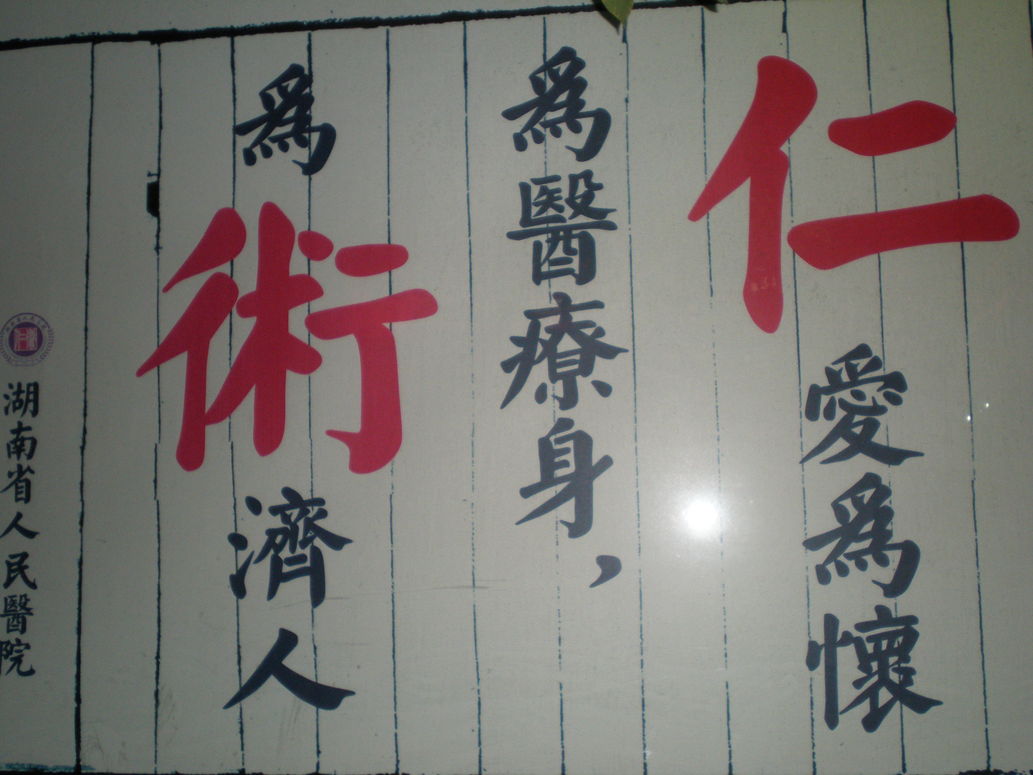 仁愛爲懷
爲醫療身，
爲術濟人
湖南省人民醫院